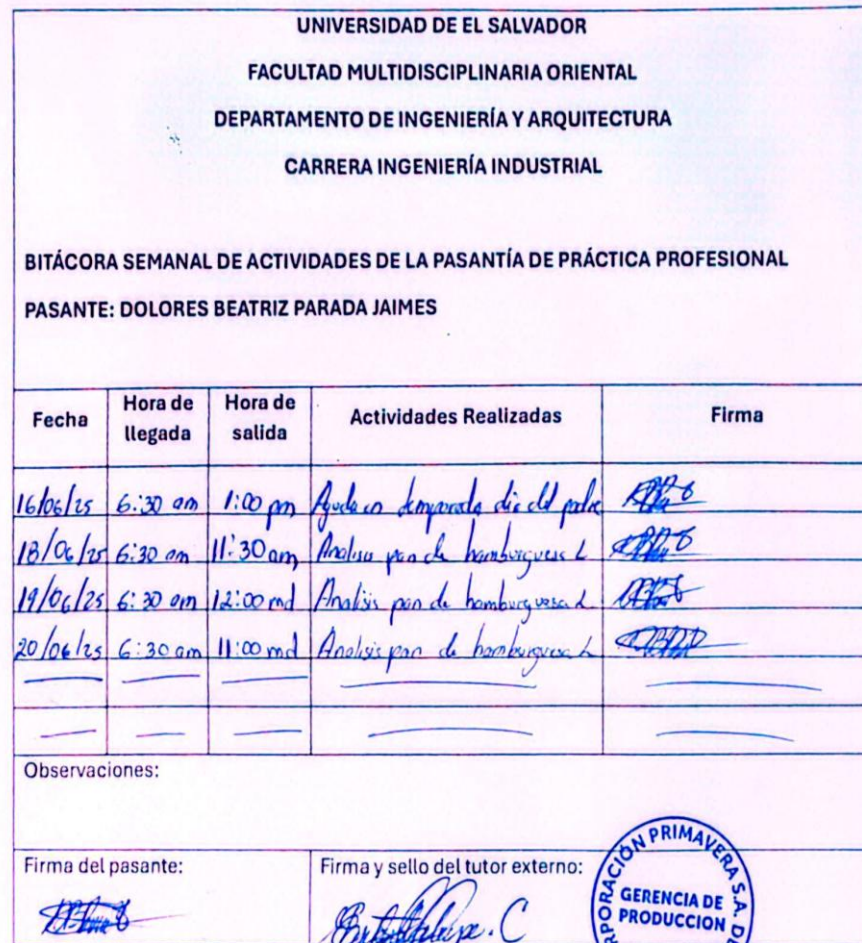 UNIVERSIDAD DE EL SALVADOR
FACULTAD MULTIDISCIPLINARIA ORIENTAL
DEPARTAMENTO DE INGENIERÍA Y ARQUITECTURA
CARRERA INGENIERÍA INDUSTRIAL
BITÁCORA SEMANAL DE ACTIVIDADES DE LA PASANTÍA DE PRÁCTICA PROFESIONAL
PASANTE: DOLORES BEATRIZ PARADA JAIMES
Fecha Hora de llegada Hora de salida Actividades Realizadas Firma
16/06/25 6:30 am 1:00 pm Ayuda en temporada dia del padre
18/06/25 6:30 am 11:30 am Analisis pan de hamburguesa L
19/06/25 6:30 am 12:00 md Analisis pan de hamburguesa L
20/06/25 6:30 am 11:00 md Analisis pan de hamburguesa L
Observaciones:
Firma del pasante: Firma y sello del tutor externo:
PRIMAVERA S.A. DE
GERENCIA DE
PRODUCCION